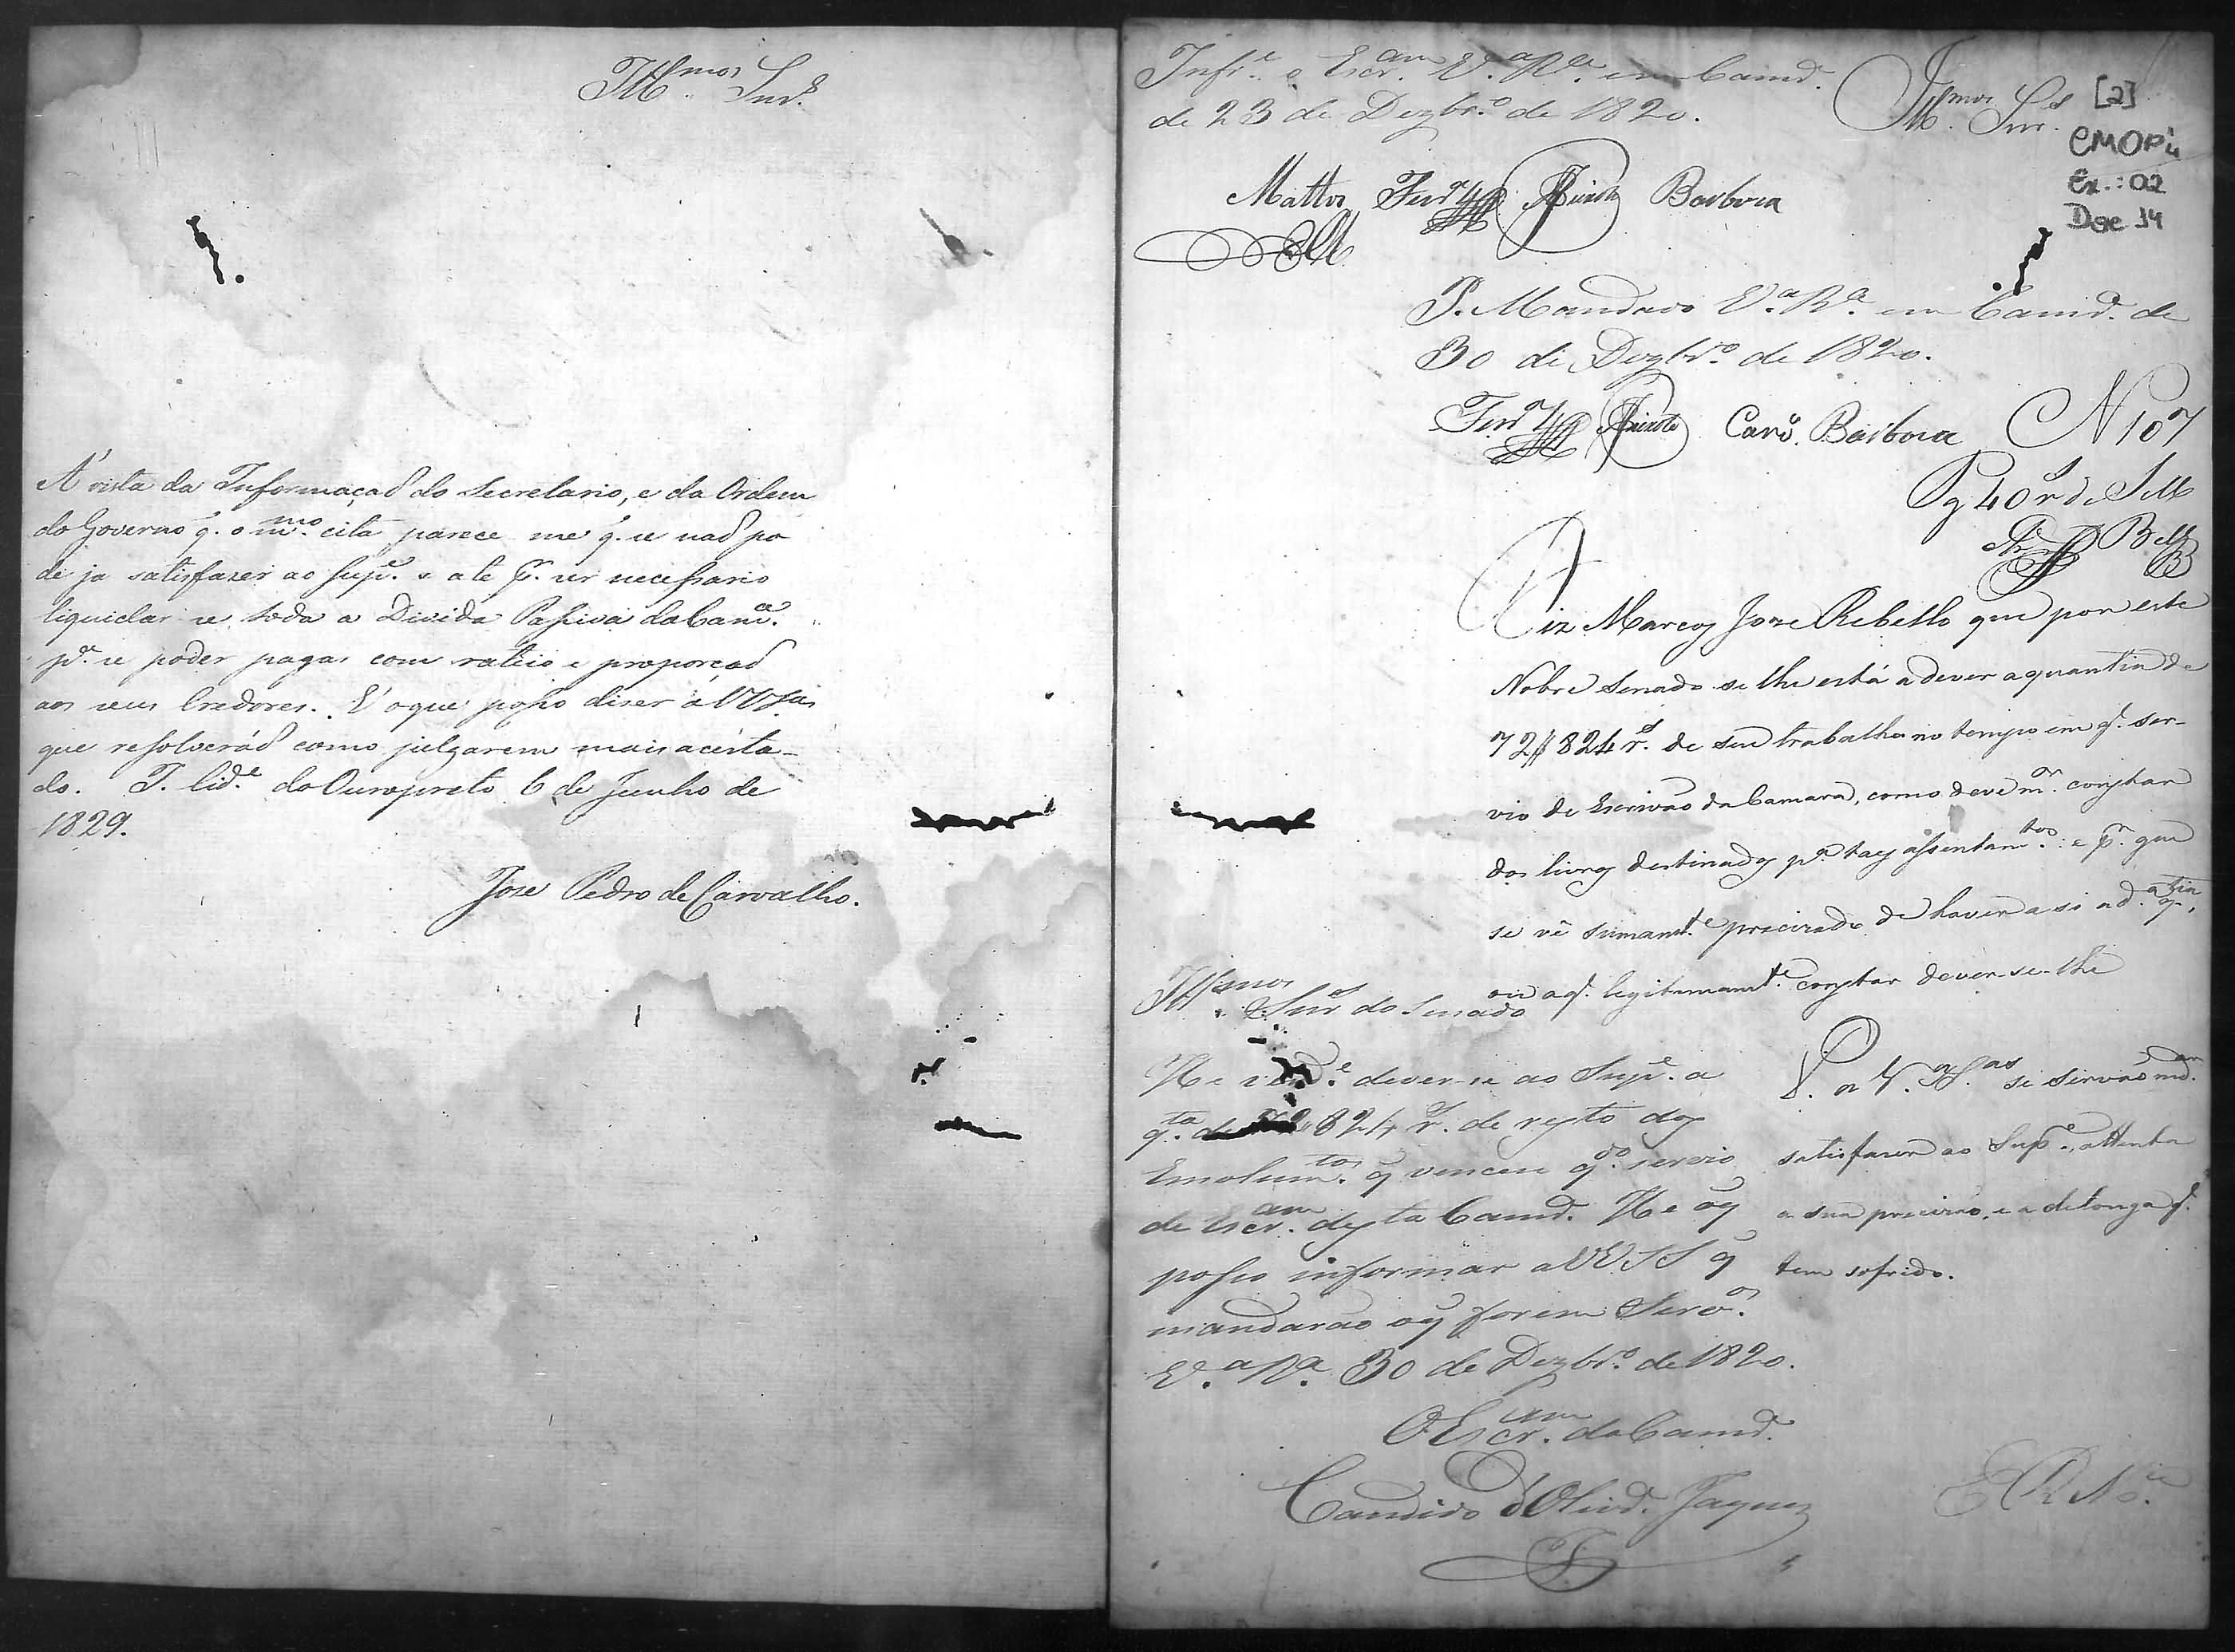 Ill.mos Snr.s
A' vista da Informaçaõ do Secretario, e da Ordem
do Governo q. o m.mo cita parece me q. se naõ po
de ja satisfazer ao Sup.e e ate p.r ser necessario
liquidar se toda a Divida Passiva da Cam.ca
p.a se poder pagar com rateio e proporçaõ
aos seus Credores. E' o que posso diser a VV Sas
que resolveráõ como julgarem mais acerta-
do. I. Cid.e do Ouropreto 6 de Junho de
1829.
Joze Pedro de Carvalho.
Infr.e o Escr.am V.a R.ca em Camr.a
de 23 de Dezbr.o de 1820.
Mattos Ferr.a Barboza
Ill.mos Snr.s
[2]
CMOP
Cx.: 02
Doc 14
P. Mandado V.a R.ca em Camr.a de
30 de Dezbr.o de 1820.
Ferr.a Barboza
N 107
Pg 40 r.s de Sello
Diz Marcos Joze Rebello que por este
Nobre Senado se lhe está a dever a quantia de
72$824 r.s de seu trabalho no tempo em q. ser-
vio de Escrivão da Camara, como deve m.or constar
dos livros destinados p.a taes assentam.tos: e p.r que
se vê sumam.te precizado de haver a si a d.a q.tia,
ou a q. legitimam.te constar dever-se-lhe
P. a V. S.as se sirvaõ md.ar
satisfazer ao Sup.e, attenta
a sua precizão, e a delonga q.
tem sofrido.
E R M.ce
Ill.mos Snr.s do Senado
He verd.e dever-se ao Sup.e a
q.ta de 72$824 r.s de resto dos
Emolum.tos q̃ venceu q.do servio
de Escr.am desta Camr.a He oq̃
posso informar a VV SS q̃
mandarão oq̃ forem Serv.os
V.a R.ca 30 de Dezbr.o de 1820.
O Escr.am da Camr.a
Candido d'Olivr.a Jaques